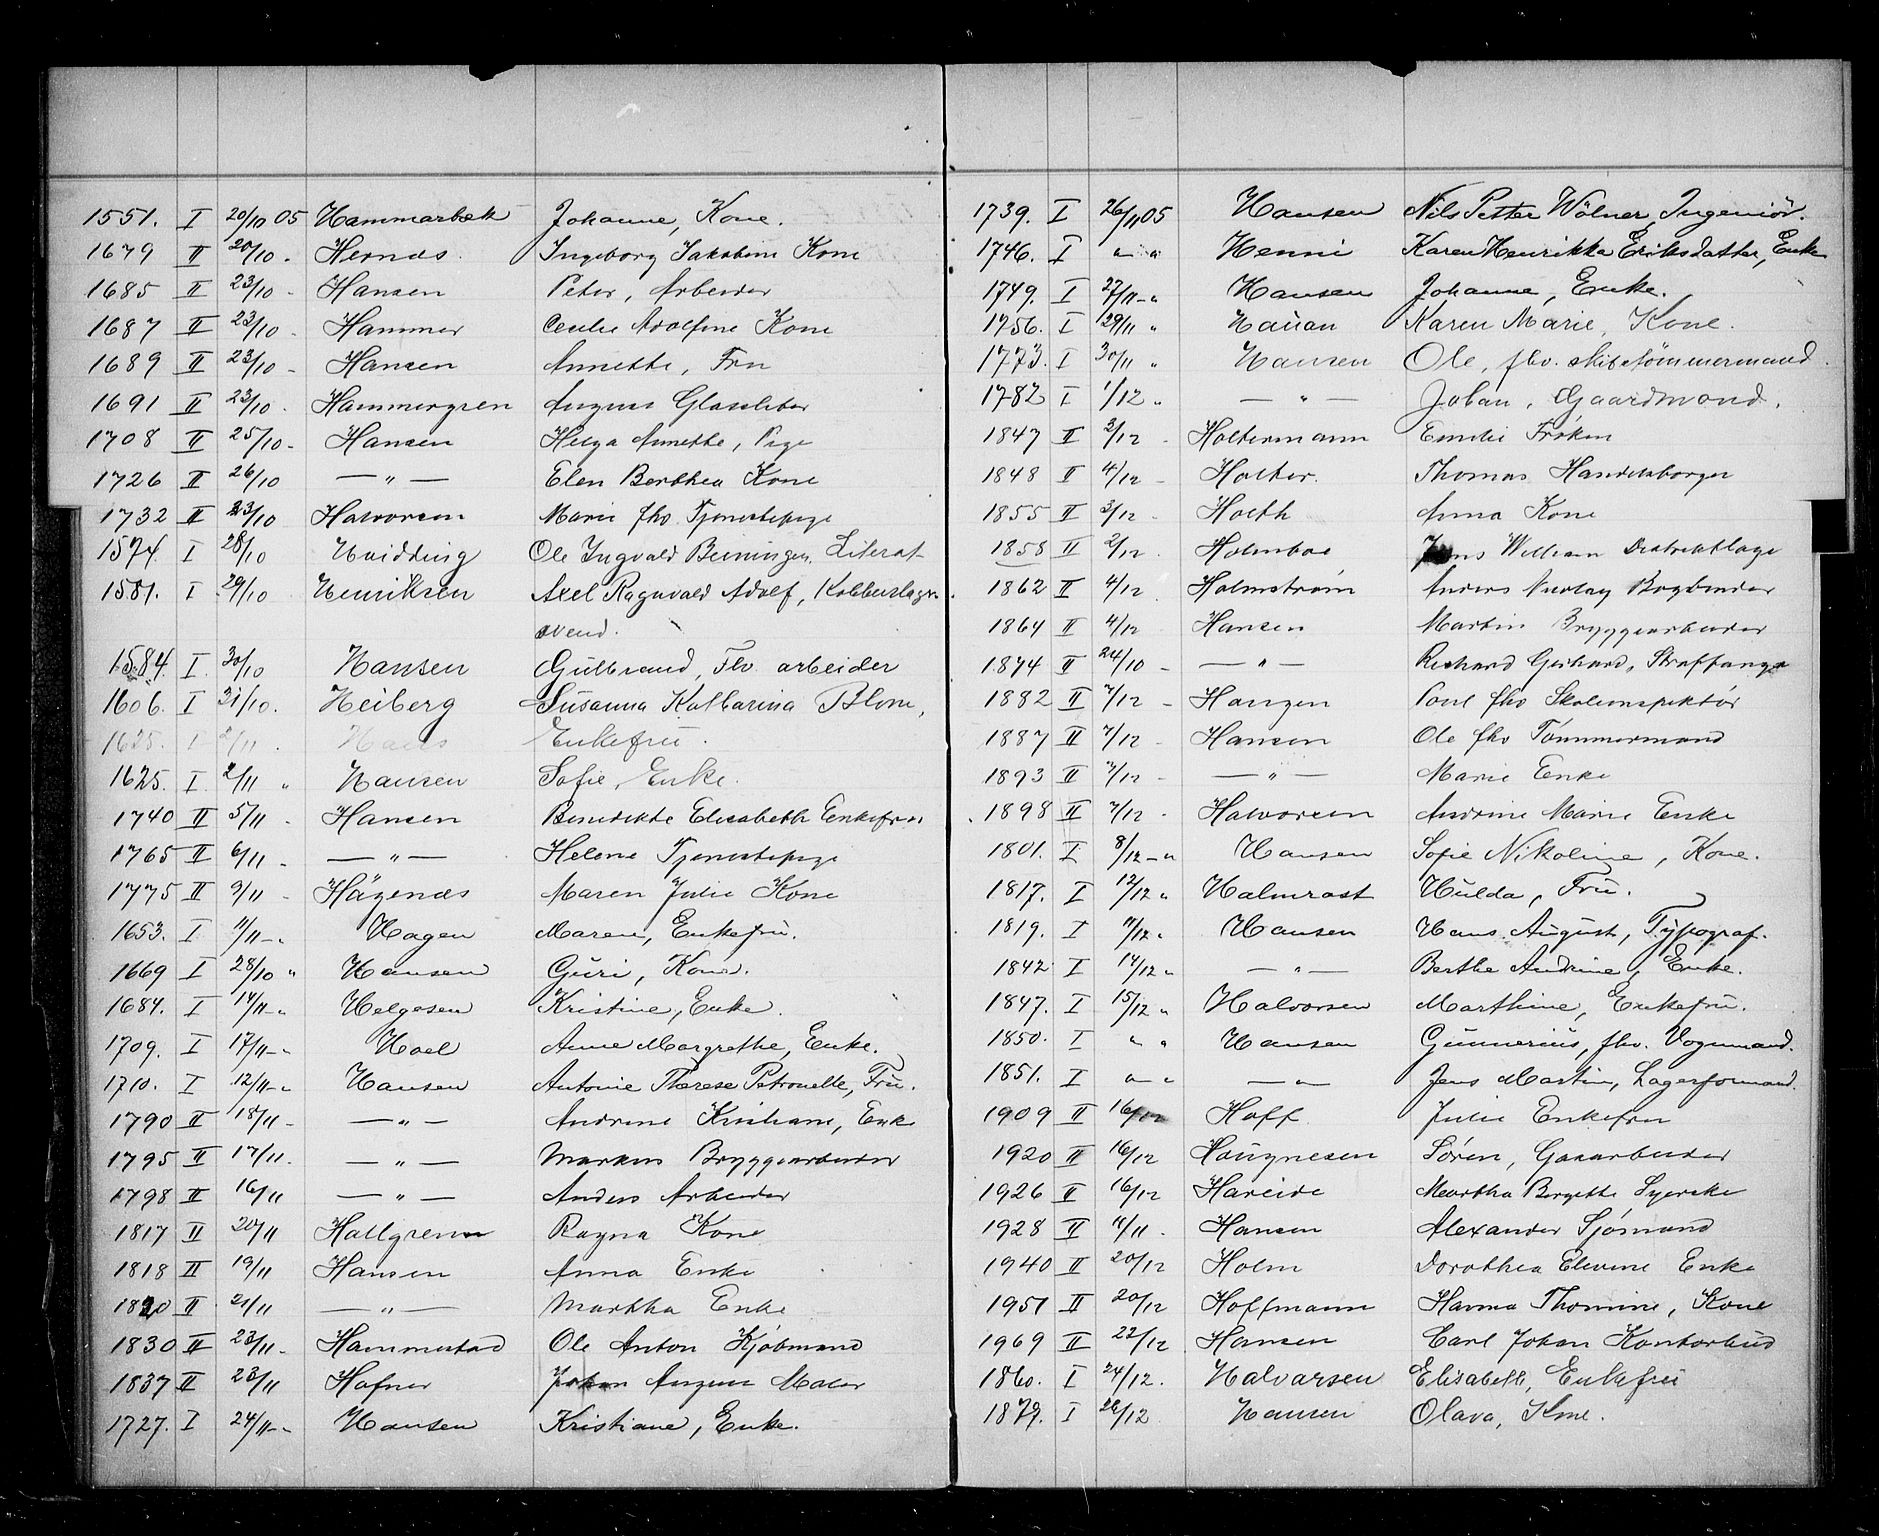 1551. I 20/10 05 Hammarbæk Johanne, Kone.
1679 II 20/10 - Hernæs. Ingeborg Jakobine Kone
1685 II 23/10 - Hansen Peter, Arbeider
1687 II 23/10 - Hammer Cecilie Adolfine Kone
1689 II 23/10 - Hansen Annette, Fru
1691 II 23/10 - Hammergren August Glassliber
1708 II 25/10 - Hansen Helga Annette, Pige
1726 II 26/10 — " — Elen Berthea Kone
1732 II 23/10 Halvorsen Marie fhv. Tjenestepige
1574. I 28/10 Hvidding Ole Ingvald Beiningen, Literat
1581. I 29/10 Henriksen Axel Ragnvald Adolf, Kobberslager
svend.
1584. I 30/10 Hansen Gulbrand, Fhv. arbeider
1606. I 31/10. Heiberg Susanna Katharina Blom,
1625. I 2/11 . Hans Enkefru.
1625. I 2/11 " Hansen Sofie, Enke.
1740 II 5/11 - Hansen Benedikte Elisabeth Enkefru
1765 II 6/11 - — " — Helene Tjenestepige
1775 II 9/11 - Hågenæs Maren Julie Kone
1653. I 11/11 - " Hagen Maren, Enkefru.
1669 I 28/10 " Hansen Guri, Kone.
1684. I 14/11 - " Helgesen Kristine, Enke.
1709. I 17/11 - " Hoel Anne Margrethe, Enke.
1710. I 12/11 - " Hansen Antonie Therese Petronelle, Fru.
1790 II 18/11 - — " — Andrine Kristiane, Enke
1795 II 17/11. — " — Markus Bryggearbeider
1798 II 16/11 — " — Anders Arbeider
1817 II 20/11 Hallgrenn Ragna Kone
1818 II 19/11 Hansen Anna Enke
1820 II 21/11 — " — Martha Enke
1830 II 23/11 - Hammerstad Ole Anton Kjøbmand
1837 II 23/11 Hafner Johan August Maler
1727. I 24/11 - " Hansen Kristiane, Enke.
1739. I 26/11 05 Hansen Nils Petter Wölner, Ingeniör.
1746. I " " Henni Karen Henrikka Eriksdatter, Enke
1749. I 27/11 - " Hansen Johanne, Enke.
1756. I 29/11 " Hauan Karen Marie, Kone.
1773. I 30/11 " Hansen Ole, fhv. skibstømmermand.
1782 I 1/12 " — " — Johan, Gaardmand.
1847 II 3/12 - Holtermann Emilie Frøken
1848 II 4/12 - Holter. Thomas Handelsborger
1855 II 3/12 . Holth Anna Kone
1858 II 2/12 . Holmboe Jens William Distriktslæge
1862 II 4/12 . Holmstrøm Anders Nicolay Bogbinder
1864 II 4/12 Hansen Martin Bryggearbeider
1874 II 24/10 - — " — Richard Gerhard, Straffange
1882 II 7/12 - Hangen Poul fhv Skoleinspektör
1887 II 7/12 - Hansen Ole fhv Tømmermand
1893 II 7/12 - — " — Marie Enke
1898 II 7/12 . Halvorsen Andrine Marie Enke
1801. I 8/12 - " Hansen Sofie Nikoline, Kone.
1817. I 12/12 " Halmrast Hulda, Fru.
1819. I 11/12 " Hansen Hans August, Typograf.
1842 I 14/12 " — " — Berthe Andrine, Enke.
1847. I 15/12 " Halvorsen Marthine, Enkefru.
1850. I " " Hansen Gunnerius, fhv. Vognmand.
1851. I " " — " — Jens Martin, Lagerformand.
1909 II 16/12 Hoff Julie Enkefru
1920 II 16/12 Haugnesen Søren, Gasarbeider
1926 II 16/12 Hareide Martha Bergette Syerske
1928 II 11/11 . Hansen Alexander Sjømand
1940 II 20/12 Holm Dorothea Elevine Enke
1951 II 20/12 Hoffmann Hanna Thomine, Kone
1969 II 22/12 Hansen Carl Johan Kontorbud
1860. I 24/12. Halvarsen Elisabeth, Enkefru
1879. I 26/12 Hansen Olava, Kone.